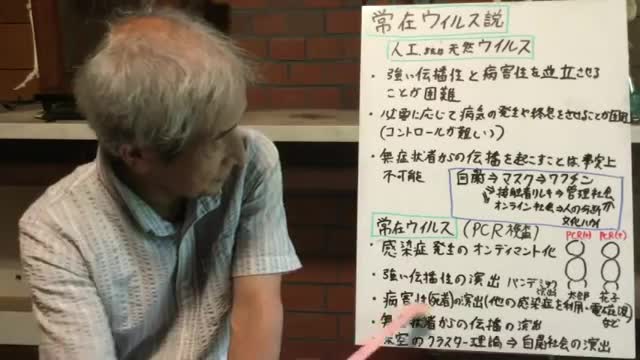 常在ウイルス説
人工 天然ウイルス
・強い伝播性と病害性を並立させる
ことが困難
・必要に応じて病気の発生や終息をさせることが困難
(コントロールが難しい)
・無症状者からの伝播を起こすことは事実上
不可能
自粛→マスク→ワクチン
接触者リレキ→管理社会
オンライン社会→人の分断
文化ハカイ
常在ウイルス (PCR検査)
PCR(+) PCR(+)
・感染症発生のオンディマンド化
・強い伝播性の演出 パンデミック
演出
太郎 花子
・病害性(死者)の演出(他の感染症を利用・電磁波)
など
・無症状者からの伝播の演出
架空のクラスター理論→自粛社会の演出